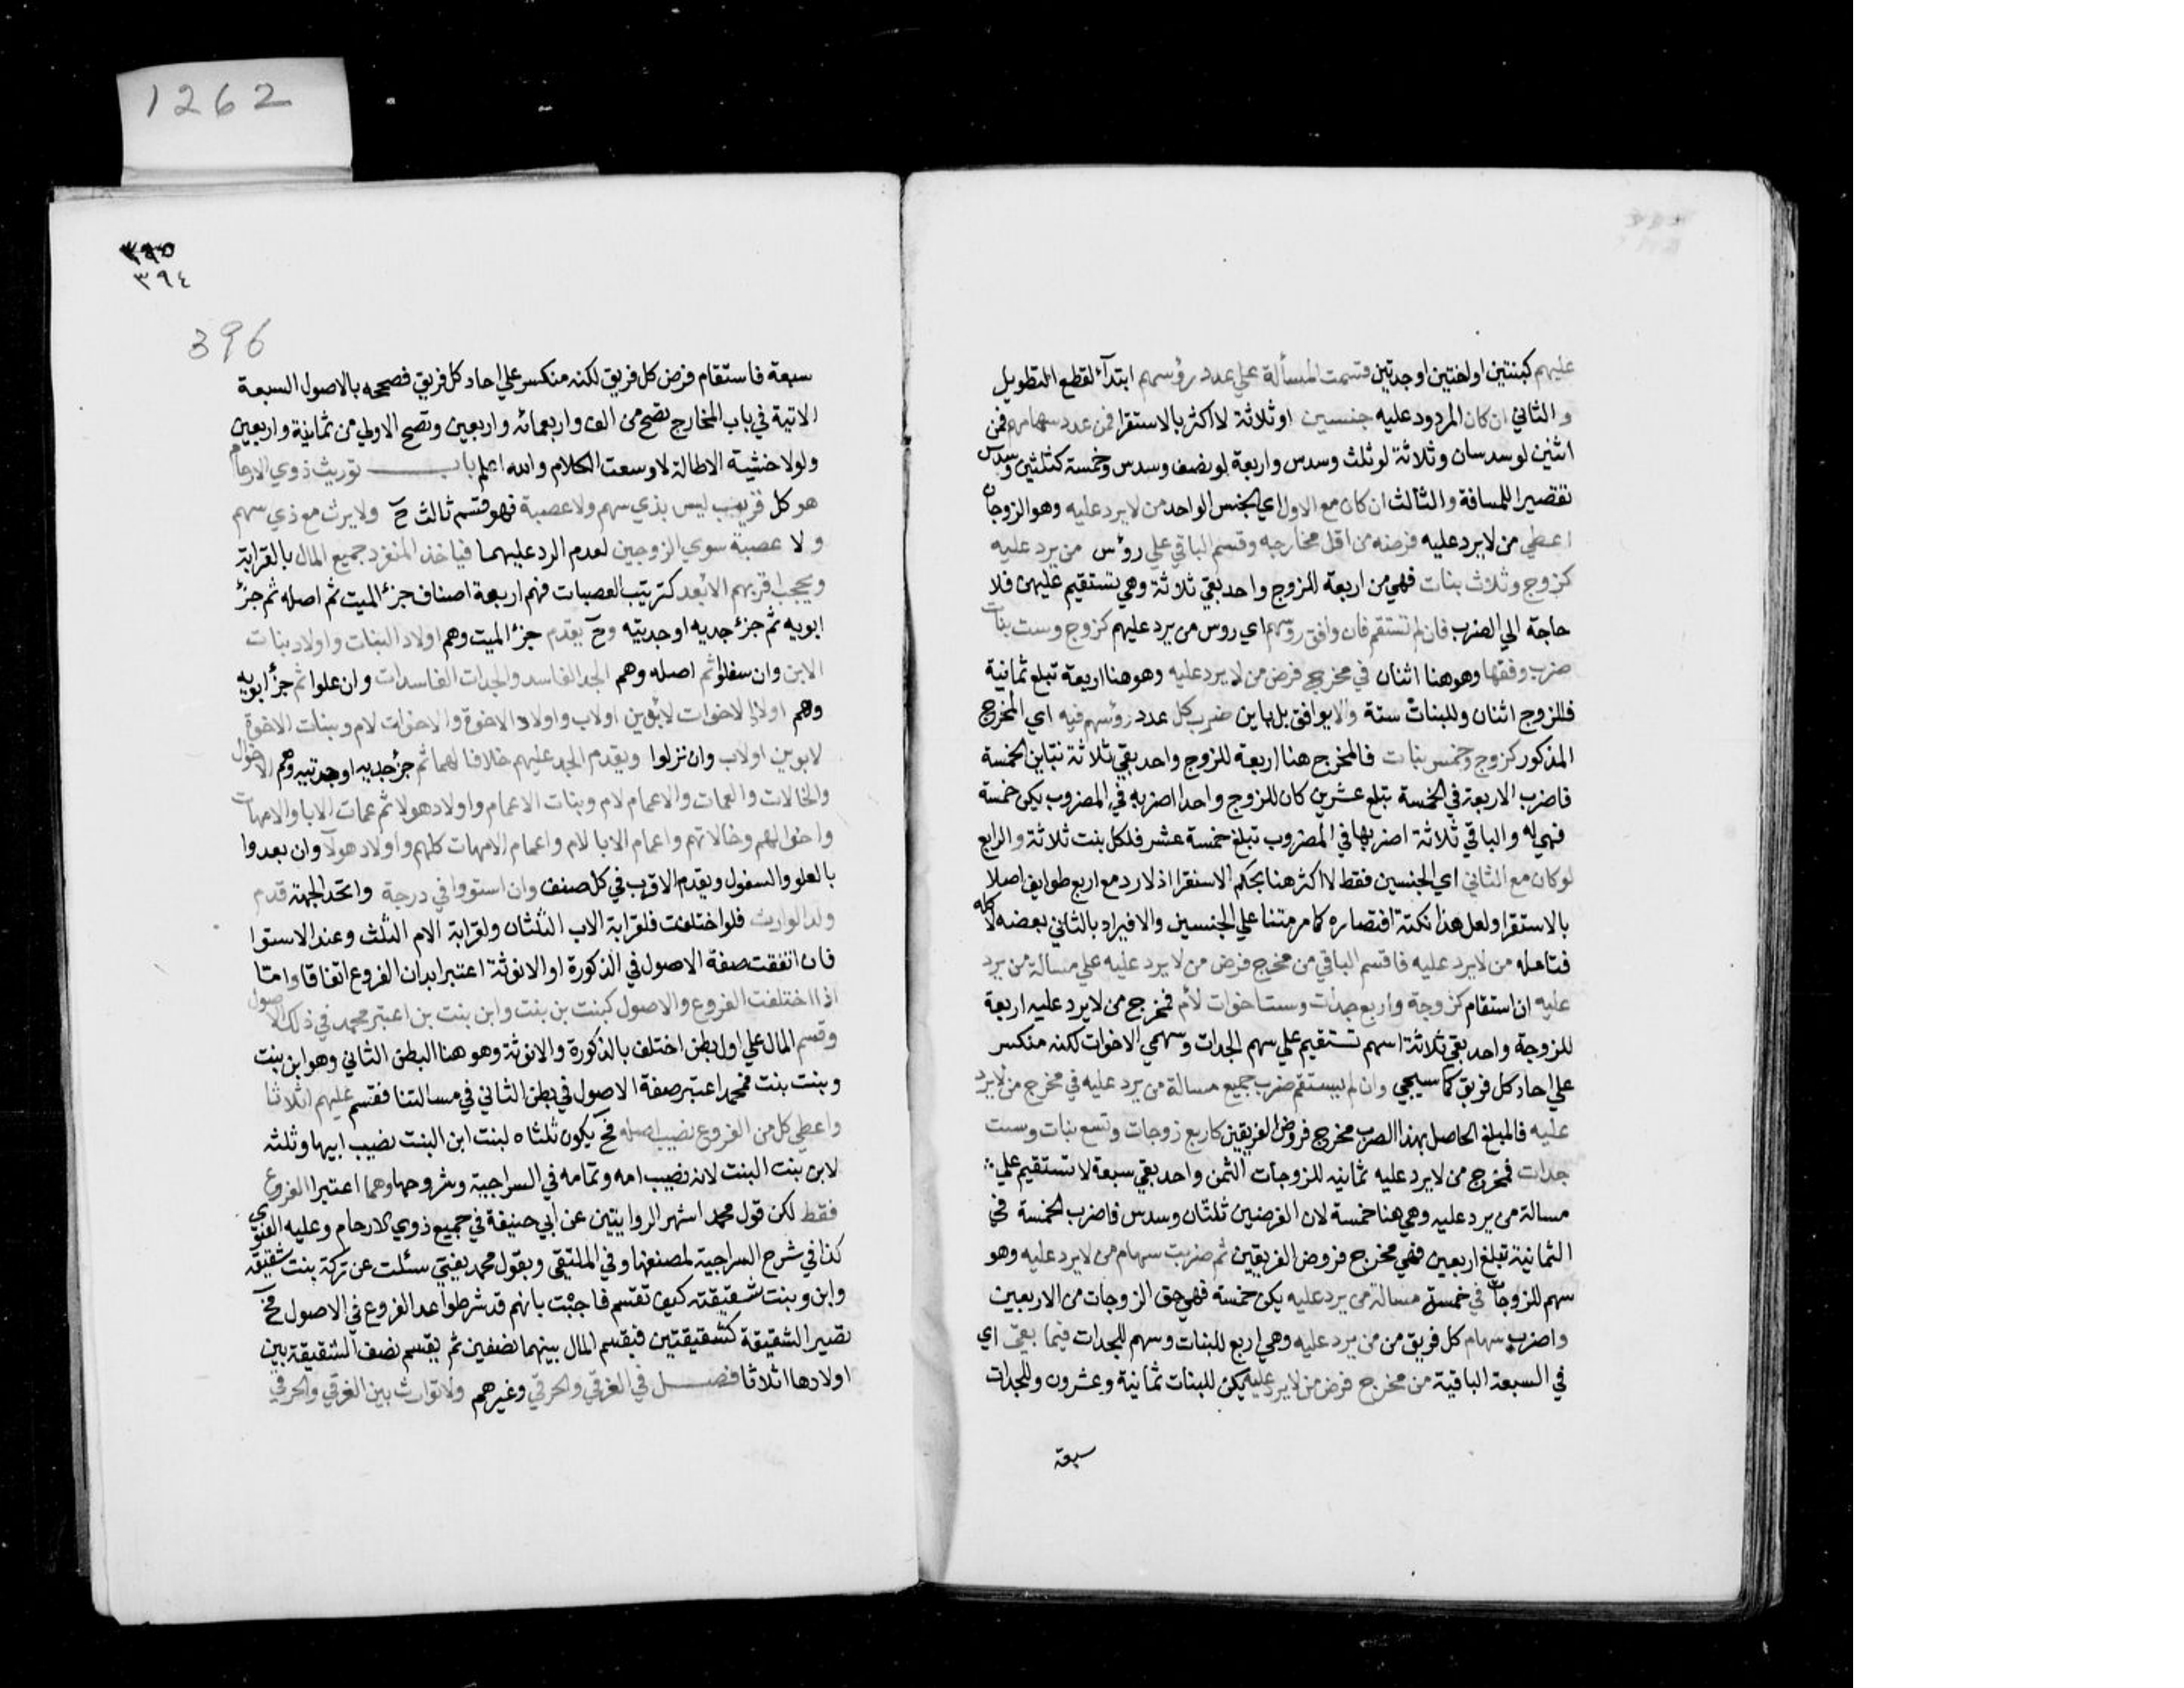 عليهم كبنتين او اختين او جدتين قسمت المسألة علي عدد رؤسهم ابتدآ لقطع التطويل
و الثاني ان كان المردود عليه جنسين او ثلاثة لا اكثر بالاستقرا فمن عدد سهامهم فمن
اثنين لو سدسان وثلاثة لو ثلث وسدس واربعة لو نصف وسدس وخمسة كثلثين وسدس
تقصيرا للمسافة والثالث ان كان مع الاول اي الجنس الواحد من لا يرد عليه وهو الزوجان
اعطي من لا يرد عليه فرضه من اقل مخارجه وقسم الباقي علي رؤس من يرد عليه
كزوج وثلاث بنات فهي من اربعة للزوج واحد بقي ثلاثة وهي تستقيم عليهن فلا
حاجة الي الضرب فان لم تستقم فان وافق رؤسهم اي روس من يرد عليهم كزوج وست بنات
ضرب وفقها وهو هنا اثنان في مخرج فرض من لا يرد عليه وهو هنا اربعة تبلغ ثمانية
فللزوج اثنان وللبنات ستة والا يوافق بل باين ضرب كل عدد رؤسهم فيه اي المخرج
المذكور كزوج وخمس بنات فالمخرج هنا اربعة للزوج واحد بقي ثلاثة تباين الخمسة
فاضرب الاربعة في الخمسة تبلغ عشرين كان للزوج واحد اضربه في المضروب يكن خمسة
فهي له والباقي ثلاثة اضربها في المضروب تبلغ خمسة عشر فلكل بنت ثلاثة والرابع
لو كان مع الثاني اي الجنسين فقط لا اكثر هنا بحكم الاستقرا اذ لا رد مع اربع طوايف اصلا
بالاستقرا ولعل هذا نكتة اقتصاره كما مر متنا علي الجنسين والا فيراد بالثاني بعضه لا كله
فتامله من لا يرد عليه فاقسم الباقي من مخرج فرض من لا يرد عليه علي مسالة من يرد
عليه ان استقام كزوجة واربع جدات وست اخوات لأم فمخرج من لا يرد عليه اربعة
للزوجة واحد بقي ثلاثة اسهم تستقيم علي سهم الجدات وسهمي الاخوات لكنه منكسر
علي احاد كل فريق كما سيجي وان لم يستقم ضرب جميع مسالة من يرد عليه في مخرج من لا يرد
عليه فالمبلغ الحاصل بهذا الضرب مخرج فروض الفريقين كاربع زوجات وتسع بنات وست
جدات فمخرج من لا يرد عليه ثمانيه للزوجات الثمن واحد بقي سبعة لا تستقيم علي
مسالة من يرد عليه وهي هنا خمسة لان الفرضين ثلثان وسدس فاضرب الخمسة في
الثمانية تبلغ اربعين فهي مخرج فروض الفريقين ثم ضربت سهام من لا يرد عليه وهو
سهم للزوجات في خمسة مسالة من يرد عليه يكن خمسة فهي حق الزوجات من الاربعين
واضرب سهام كل فريق من من يرد عليه وهي اربع للبنات وسهم للجدات فيما بقي اي
في السبعة الباقية من مخرج فرض من لا يرد عليه يكن للبنات ثمانية وعشرون وللجدات
سبعة
1262
٣٩٥
٣٩٤
396
سبعة فاستقام فرض كل فريق لكنه منكسر علي احاد كل فريق فصححه بالاصول السبعة
الاتية في باب المخارج تصح من الف واربعمائه واربعين وتصح الاولي من ثمانية واربعين
ولولا خشية الاطالة لاوسعت الكلام والله اعلم باب توريث ذوي الارحام
هو كل قريب ليس بذي سهم ولا عصبة فهو قسم ثالث ح ولا يرث مع ذي سهم
ولا عصبة سوي الزوجين لعدم الرد عليهما فياخذ المنفرد جميع المال بالقرابة
ويحجب اقربهم الابعد كترتيب العصبات فهم اربعة اصناف جزؤ الميت ثم اصله ثم جزؤ
ابويه ثم جزؤ جديه او جدتيه وح يقدم جزؤ الميت وهم اولاد البنات واولاد بنات
الابن وان سفلوا ثم اصله وهم الجد الفاسد والجدات الفاسدات وان علوا ثم جزؤ ابويه
وهم اولاد الاخوات لابوين او لاب واولاد الاخوة والاخوات لام وبنات الاخوة
لابوين او لاب وان نزلوا ويقدم الجد عليهم خلافا لهما ثم جزؤ جديه او جدتيه وهم الاخوال
والخالات والعمات والاعمام لام وبنات الاعمام واولاد هولا ثم عمات الابا والامهات
واخوالهم وخالاتهم واعمام الابا لام واعمام الامهات كلهم واولاد هولآ وان بعدوا
بالعلو والسفول ويقدم الاقرب في كل صنف وان استووا في درجة واتحد الجهة قدم
ولد الوارث فلو اختلفت فلقرابة الاب الثلثان ولقرابة الام الثلث وعند الاستوا
فان اتفقت صفة الاصول في الذكورة او الانوثة اعتبر ابدان الفروع اتفاقا واما
اذا اختلفت الفروع والاصول كبنت بن بنت وابن بنت بن اعتبر محمد في ذلك الاصول
وقسم المال علي اول بطن اختلف بالذكورة والانوثة وهو هنا البطن الثاني وهو ابن بنت
وبنت بنت فمحمد اعتبر صفة الاصول في بطن الثاني في مسالتنا فقسم عليهم اثلاثا
واعطي كل من الفروع نصيب اصله فح يكون ثلثاه لبنت ابن البنت نصيب ابيها وثلثه
لابن بنت البنت لانه نصيب امه وتمامه في السراجية وشروحها وهما اعتبرا الفروع
فقط لكن قول محمد اشهر الروايتين عن ابي حنيفة في جميع ذوي الارحام وعليه الفتوي
كذا في شرح السراجية لمصنفها وفي الملتقي وبقول محمد يفتي سئلت عن تركة بنت شقيقه
وابن وبنت شقيقته كيف تقسم فاجبت بانهم قد شرطوا عد الفروع في الاصول فح
تصير الشقيقة كشقيقتين فيقسم المال بينهما نصفين ثم يقسم نصف الشقيقة بين
اولادها اثلاثا فصل في الغرقي والحرقي وغيرهم ولا توارث بين الغرقي والحرقي